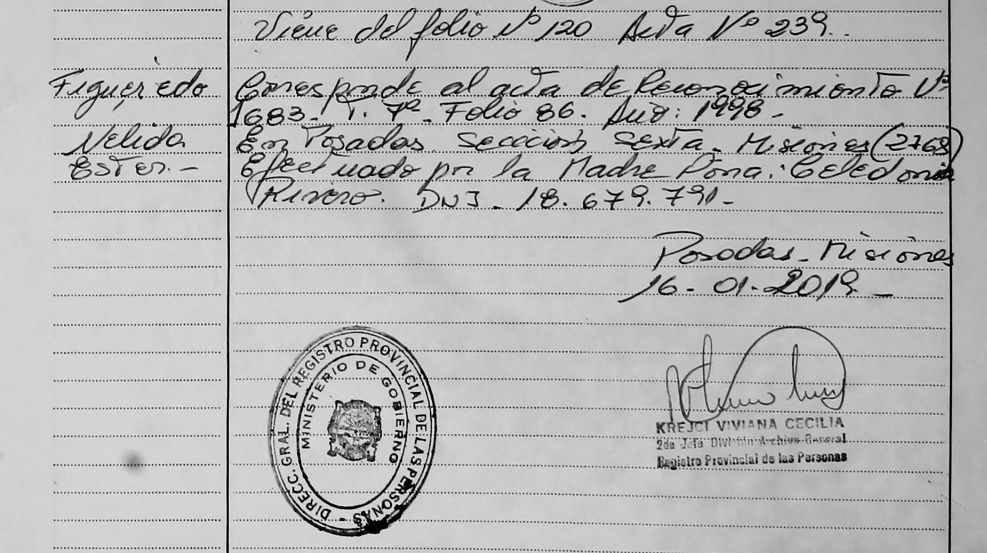 Viene del folio Nº 120 Acta Nº 239.
Figueredo
Nelida
Ester.-
Corresponde al acta de Reconocimiento Nº
1683. T. 7º. Folio 86. Año: 1998.-
En Posadas Seccion Sexta. Misiones (2768)
Efectuado por la Madre Dona: Celedonia
Rivero. DNI. 18.679.791-
Posadas. Misiones
16-01-2019-
DIRECC. GRAL. DEL REGISTRO PROVINCIAL DE LAS PERSONAS
MINISTERIO DE GOBIERNO
KREJCI VIVIANA CECILIA
2da Jefa División Archivo General
Registro Provincial de las Personas